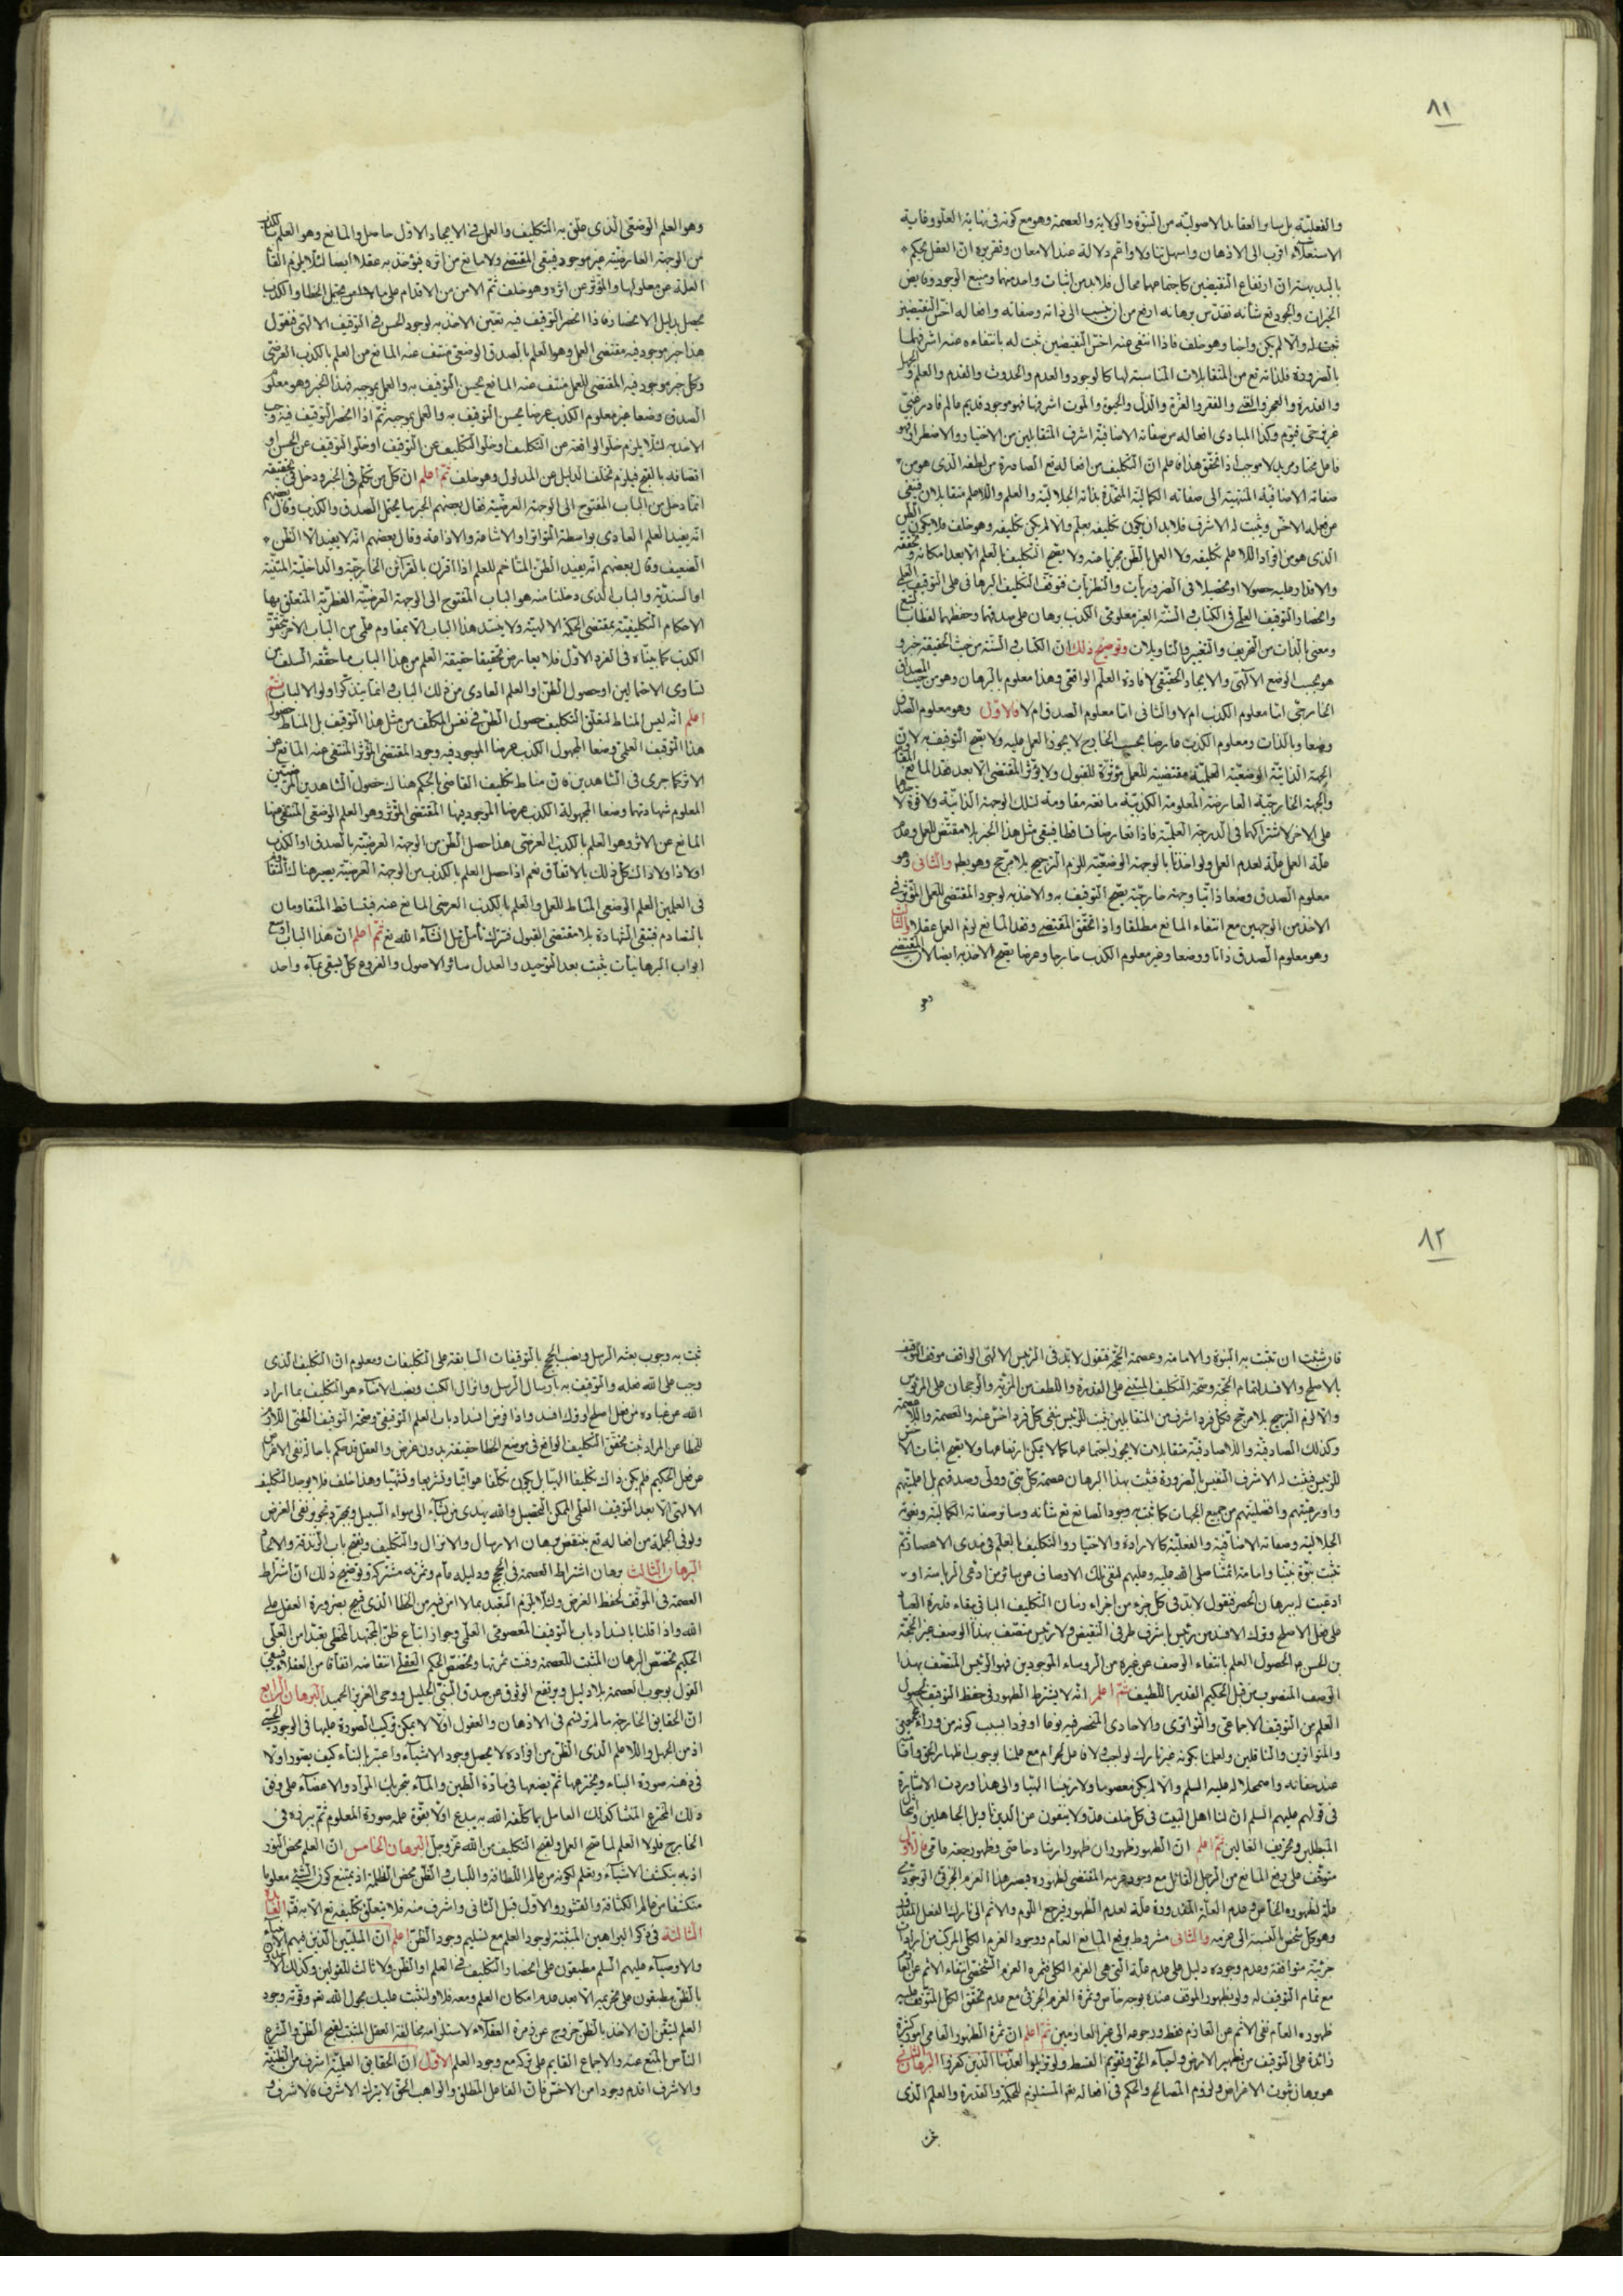 ٨١
والفعليّة بل ساير العقايد الاصوليّة من النبوّة والولاية والعصمة وهو مع كونه في نهاية العلوّ وغاية
الاستعلاء اقرب الى الاذهان واسهل تناولا واتم دلالة عند الامعان وتقريره ان العقل يحكم
بالبديهة ان ارتفاع النقيضين كاجتماعهما محال فلا بد من اثبات واحد منهما ومنبع الوجود وفايض
الخيرات والجود تع شأنه تقدّس برهانه ارفع من ان ينسب الى ذاته وصفاته وافعاله اخسّ النقيضين
ثبت له والا لم يكن واجبا وهو خلف فاذا انتفى عنه اخسّ النقيضين ثبت له بانتفاءه عنه اشرفهما
بالضرورة فلذاته تع من المتقابلات المناسبة لها كالوجود والعدم والحدوث والقدم والعلم والجهل
والقدرة والعجز والغنى والفقر والعزّة والذلّ والحيوة والموت اشرفها فهو موجود قديم عالم قادر غنيّ
عزيز حيّ قيّوم وكذا المبادى افعاله من صفاته الاضافيّة اشرف المتقابلين من الاختيار والاضطرار فهو
فاعل مختار مريد لا موجب اذا تحقّق هذا فاعلم انّ التكليف من افعاله تع الصادرة من لطفه الذى هو من
صفاته الاضافيّة المنتهية الى صفاته الكماليّة المتّحدة بذاته الجلاليّة والعلم واللاعلم متقابلان فينفى
عن فعله الاخسّ ويثبت له الاشرف فلا بد ان يكون تكليفه بعلم والا لم يكن تكليفه وهو خلف فلا يكون الظن
الذى هو من افراد اللاعلم تكليفه ولا العمل بالظنّ مجزيا عنه ولا يصحّ التكليف بالعلم الا بعد امكانه وتحققه
والاقدار عليه حصولا او تحصيلا في الضروريّات والنظريّات فتوقف التكليف البرهانى على التوقيف العلمى
وانحصار التوقيف العلمى في الكتاب والسنّة الغير معلومى الكذب برهان على صدقهما وحفظهما لفظا
ومعنى بالذات من التحريف والتغيير والتاويلات وتوضيح ذلك ان الكتاب والسنّة من حيث الحقيقة خبر و
هو بحسب الوضع الالهى والايجاد الحقيقى لافادة العلم الواقعى وهذا معلوم بالبرهان وهو من حيث المصداق
الخارجى امّا معلوم الكذب ام لا والثانى امّا معلوم الصدق ام لا فالاوّل وهو معلوم الصدق
وضعا وبالذات ومعلوم الكذب عارضا بحسب الخارج لا يجوز العمل عليه ولا يصحّ التوقيف به لانّ
الجهة الذاتيّة الوضعيّة العلميّة مقتضية للعمل مؤثّرة للقبول ولا يؤثّر المقتضى الا بعد فقد المانع
والجهة الخارجيّة العارضة المعلومة الكذبيّة مانعة مقاومة لتلك الوجهة الذاتيّة ولا قوة
على الاخر لاشتراكهما في الدرجة العلميّة فاذا تعارضا تساقطا فيبقى مثل هذا الخبر بلا مقتض للعمل وعدم
علّة العمل علّة لعدم العمل ولو اخذنا بالوجهة الوضعيّة للزم الترجيح بلا مرجّح وهو بط والثانى وهو
معلوم الصدق وضعا ذاتيا وجهة خارجيّة يصحّ التوقيف به والاخذ به لوجود المقتضى للعمل المؤثّر في
الاخذ من الوجهين مع انتفاء المانع مطلقا واذا تحقّق المقتضى وفقد المانع لزم العمل عقلا والثالث
وهو معلوم الصدق ذاتا ووضعا وغير معلوم الكذب خارجا وعرضا يصحّ الاخذ به ايضا لان المقتضى
وهو
وهو العلم الوضعى الذى علّق به التكليف والعمل في الايجاد الاوّل حاصل والمانع وهو العلم بالكذب
من الوجهة العارضيّة غير موجود فيبقى المقتضى ولا مانع من اثره فيؤخذ به عقلا ايضا لئلا يلزم تخلّف
العلّة عن معلولها والمؤثّر عن اثره وهو خلف ثم الامن من الاقدام على ما لا امن محتمل الخطا والكذب
يحصل بدليل الانحصار فاذا انحصر التوقيف فيه تعيّن الاخذ به لوجود الحسن في التوقيف الالهى فنقول
هذا خبر موجود فيه مقتضى العمل وهو العلم بالصدق الوضعى منتف عنه المانع من العلم بالكذب العرضى
وكل خبر موجود فيه المقتضى للعمل منتف عنه المانع يحسن التوقيف به والعمل بموجبه فهذا الخبر وهو معلوم
الصدق وضعا غير معلوم الكذب عرضا يحسن التوقيف به والعمل بموجبه ثمّ اذا انحصر التوقيف فيه وجب
الاخذ به لئلا يلزم خلوّ الواقعة عن التكليف او خلوّ التكليف عن التوقيف او خلوّ التوقيف عن الحسن او
اتصافه بالقبح فيلزم تخلّف الدليل عن المدلول وهو خلف ثمّ اعلم انّ كل من تكلّم في الخبر ودخل في تحقيقه
انّما دخل من الباب المفتوح الى الوجهة العرضيّة فقال بعضهم الخبر ما يحتمل الصدق والكذب وقال بعضهم
انّه يفيد العلم العادى بواسطة التواتر او الاشاعة والاذاعة وقال بعضهم انّه لا يفيد الا الظن
الضعيف وقال بعضهم انّه يفيد الظنّ المتاخم للعلم اذا اقترن بالقرآئن الخارجيّة والداخليّة المتنيّة
او السنديّة والباب الذى دخلنا منه هو الباب المفتوح الى الوجهة العرضيّة الفطريّة المتعلّق بها
الاحكام التكليفيّة بمقتضى الحكمة الالهيّة ولا ينسدّ هذا الباب الا بمقاوم علمى من الباب الاخر تحقّق
الكذب كما بيّناه في الفرد الاوّل فلا يعارض تحقيقنا حقيقة العلم من هذا الباب ما حقّقه السلف من
تساوى الاحتمالين او حصول الظنّ او العلم العادى من ذلك الباب وانّما يتذكّر اولوا الالباب ثمّ
اعلم انّه ليس المناط لتعلّق التكليف حصول الظنّ في نفس المكلّف من مثل هذا التوقيف بل المناط حصول
هذا التوقيف العلمى وضعا المجهول الكذب عرضا الموجود فيه وجود المقتضى المؤثّر المنتفى عنه المانع عن
الاثر كما جرى في الشاهدين فان مناط تكليف القاضى بالحكم هناك حصول الشاهدين المرضيين
المعلوم شهادتهما وضعا المجهولة الكذب عرضا الموجود فيها المقتضى المؤثّر وهو العلم الوضعى المنتفى عنها
المانع عن الاثر وهو العلم بالكذب العرضى هذا حصل الظنّ من الوجهة العرضيّة بالصدق او الكذب
اولا ذا ولا ذاك كلّ ذلك بالاتفاق نعم اذا حصل العلم بالكذب من الوجهة العرضيّة يصير هناك
في العلمين العلم الوضعى المناط للعمل والعلم بالكذب العرضى المانع عنه فيتساقط المتقاومان
بالتصادم فتبقى الشهادة بلا مقتضى القبول فترك تأمل فيه انشآء الله تع ثمّ اعلم انّ هذا الباب اوسع
ابواب البرهانيات يثبت بعد التوحيد والعدل سائر الاصول والفروع كل يسقى بمآء واحد
٨٢
فان شئت ان تثبت به النبوّة والامامة وعصمة الحجّة فنقول لا بد في الرئيس الالهى الواقف موقف التوقيف
بالاصلح والافسد لتمام الحجّة وصحّة التكليف المبتنى على القدرة واللطف من المزيّة والرجحان على المرؤس
والا لزم الترجيح بلا مرجّح فكل فرد اشرف من المتقابلين يثبت للرئيس بنفى كل فرد اخسّ عنه والعصمة واللاعصمة
وكذلك الصادقيّة واللاصادقيّة متقابلات لا يجوز اجتماعها كما لا يمكن ارتفاعها ولا يصحّ اثبات الاخس
للرئيس فيثبت له الاشرف النفيس بالضرورة فيثبت بهذا البرهان عصمة كل نبى وولى وصدقهم بل اعلميّتهم
واورعيّتهم وافضليّتهم من جميع الجهات كما ثبت به وجود الصانع تع شأنه وسائر صفاته الكماليّة ونعوته
الجلاليّة وصفاته الاضافيّة والفعليّة كالارادة والاختيار والتكليف بالعلم في مدى الاعصار ثمّ
تثبت نبوّة نبيّنا وامامة ائمّتنا صلى الله عليه وعليهم بنفى تلك الاوصاف عن سائر من ادّعى الرياسة او
ادعيت له ببرهان الحصر فنقول لا بد في كل جزء من اجزاء زمان التكليف الباقى ببقاء قدرة العباد
على فعل الاصلح وترك الافسد من رئيس باشرف طرفى النقيض ولا رئيس متصف بهذا الوصف غير الحجّة
بن الحسن ع لحصول العلم بانتفاء الوصف عن غيره من الرؤساء الموجودين فهو الرئيس المتصف بهذا
الوصف المنصوب من قبل الحكيم القدير اللطيف ثمّ اعلم انّه لا يشترط الظهور في حفظ التوقيف لحصول
العلم من التوقيف الاجماعى والتواترى والاحادى المنحصر فيه نوعا او فردا بسبب كونه من وراء المجمعين
والمتواترين والناقلين ولعلمنا بكونه غير تارك لواجب ولا فاعل لحرام مع علمنا بوجوب اظهار الحقّ
عند خفائه واضمحلاله عليه السلم والا لم يكن معصوما ولا رئيسا الهيّا والى هذا وردت الاشارة
في قولهم عليهم السلم ان لنا اهل البيت في كل خلف عدولا ينفون عن الدين تاويل الجاهلين وانتحال
المبطلين وتحريف الغالين ثمّ اعلم ان الظهور ظهوران ظهور ارشاد خاصّى وظهور رجعة عامى فالاول
متوقّف على رفع المانع من الرجل القابل مع وجود عزمه المقتضى لظهوره فيصير هذا العزم الجزئى الوجودى
علّة لظهوره الخاص وعدم العلّة المقدورة علّة لعدم الظهور فيرجع اللوم والاثم الى تارك الفعل المقدور
وهو كل شخص بالنسبة الى عزمه والثانى مشروط برفع المانع العام ووجود العزم الكلّى المركّب من ارادات
جزئيّة متوافقة وعدم وجوده دليل على عدم علّته التى هى العزم الكلّى فثمرة العزم الشخصى انتفاء الاثم عن
مع تمام التوقيف له ولو بظهور الموقف عنده بوجه خاص وثمرة العزم الجزئى مع عدم تحقّق الكل المتوقف عليه
ظهوره العام نفى الاثم عن العازم فقط ورجوعه الى غير العازمين ثمّ اعلم انّ ثمرة الظهور العامى امور كثيرة
زائدة على التوقيف من تطهير الارض واحياء الحق وتقويم القسط ولو تزيلوا لعذّبنا الذين كفروا البرهان الثانى
هو برهان ثبوت الاغراض ولزوم المصالح والحكم في افعاله تع المستلزم للحكمة والقدرة والعلم الذى
ثبت به وجوب بعثة الرسل ونصب الحجج بالتوقيفات السابقة على التكليفات ومعلوم انّ التكليف الذى
وجب على الله فعله والتوقيف به بارسال الرسل وانزال الكتب ونصب الامناء هو التكليف بما اراد
الله عن عباده من فعل اصلح او ترك افسد واذا فرض انسداد باب العلم التوقيفى وصحّة التوقيف الظنى اللازم
للخطا عن المراد ثبت تحقّق التكليف الواقع في موضع الخطا حقيقة بدون غرض والعقل قد حكم باحالة نفى الاغراض
عن فعل الحكيم فلم يكن ذاك تكليفا الهيّا بل يكون تكلّفا هوائيّا وتشريعا وتشهّيا وهذا خلف فلا يوجد التكليف
الالهى الا بعد التوقيف العلمى الممكن التحصيل والله يهدى من يشآء الى سواء السبيل وبمجرّد تجويز نفى الغرض
ولو في الجملة من افعاله تع ينتقض برهان الارسال والانزال والتكليف ويفتح باب الزندقة والالحاد
البرهان الثالث برهان اشتراط العصمة في الحجج ودليله عام وثمرته مشتركة وتوضيح ذلك انّ اشتراط
العصمة في الموقّف لحفظ الغرض ولئلا يلزم التعبّد بما لا امن فيه من الخطا الذى قبيح بضرورة العقل على
الله واذا قلنا بانسداد باب التوقيف المعصومى العلمى وجواز اتباع ظنّ المجتهد المخطى تعبّدا من العلىّ
الحكيم تخصّص البرهان المثبت للعصمة وفنت ثمرتها وتخصّص الحكم العقلى انتقاضه اتفاقا من العقلاء فيبقى
القول بوجوب العصمة بلا دليل ويرتفع الوثوق عن صدق النبىّ الجليل ووحى العزيز الحميد البرهان الرابع
انّ الحقايق الخارجة ما لم ترتسم في الاذهان والعقول اوّلا لا يمكن تركيب الصورة عليها في الوجود العينى
اذ من الجهل واللاعلم الذى الظن من افراده لا يحصل وجود الاشيآء واعتبر بالبنّاء كيف يصوّر اولا
في ذهنه صورة البناء ويخترعها ثمّ يضعها في مادة الطين والمآء بتحريك الموآد والاعضآء على وفق
ذلك المخترع المنشا كذلك العامل بما كلّفه الله به يبدع اولا بقوّة علمه صورة المعلوم ثم يبرزه في
الخارج فلولا العلم لما صحّ العمل ولقبح التكليف من الله عزّ وجل البرهان الخامس انّ العلم محض النور
اذ به ينكشف الاشيآء ويعلم لكونه من عالم اللطافة واللباب والظنّ محض الظلمة اذ يمتنع كون الشىء معلوما
منكشفا من عالم الكثافة والقشور والاوّل قبل الثانى واشرف منه فلا يتعلّق تكليفه تع الا به
الثالثة في ذكر البراهين المثبتة لوجود العلم مع تسليم وجود الظنّ اعلم انّ المليّين الذين فيهم الانبيآء
والاوصيآء عليهم السلم مطبقون على انحصار التكليف في العلم او الظنّ ولا ثالث للقولين وكذلك
بالظنّ مطبقون على تحريمه الا بعد عدم امكان العلم ومعه فلا ولنثبت عليك بحول الله تع وقوّته وجود
العلم لتيقّن ان الاخذ بالظنّ خروج عن زمرة العقلآء لاستلزامه مخالفة العقل المثبت لقبح الظن والشرع
الناص المنع عنه والاجماع القايم على تركه مع وجود العلم الاوّل انّ الحقايق العلميّة اشرف من الظنّيّة
والاشرف اقدم وجودا من الاخسّ فانّ الفاعل المطلق والواهب الحقّ لا يترك الاشرف فالاشرف و